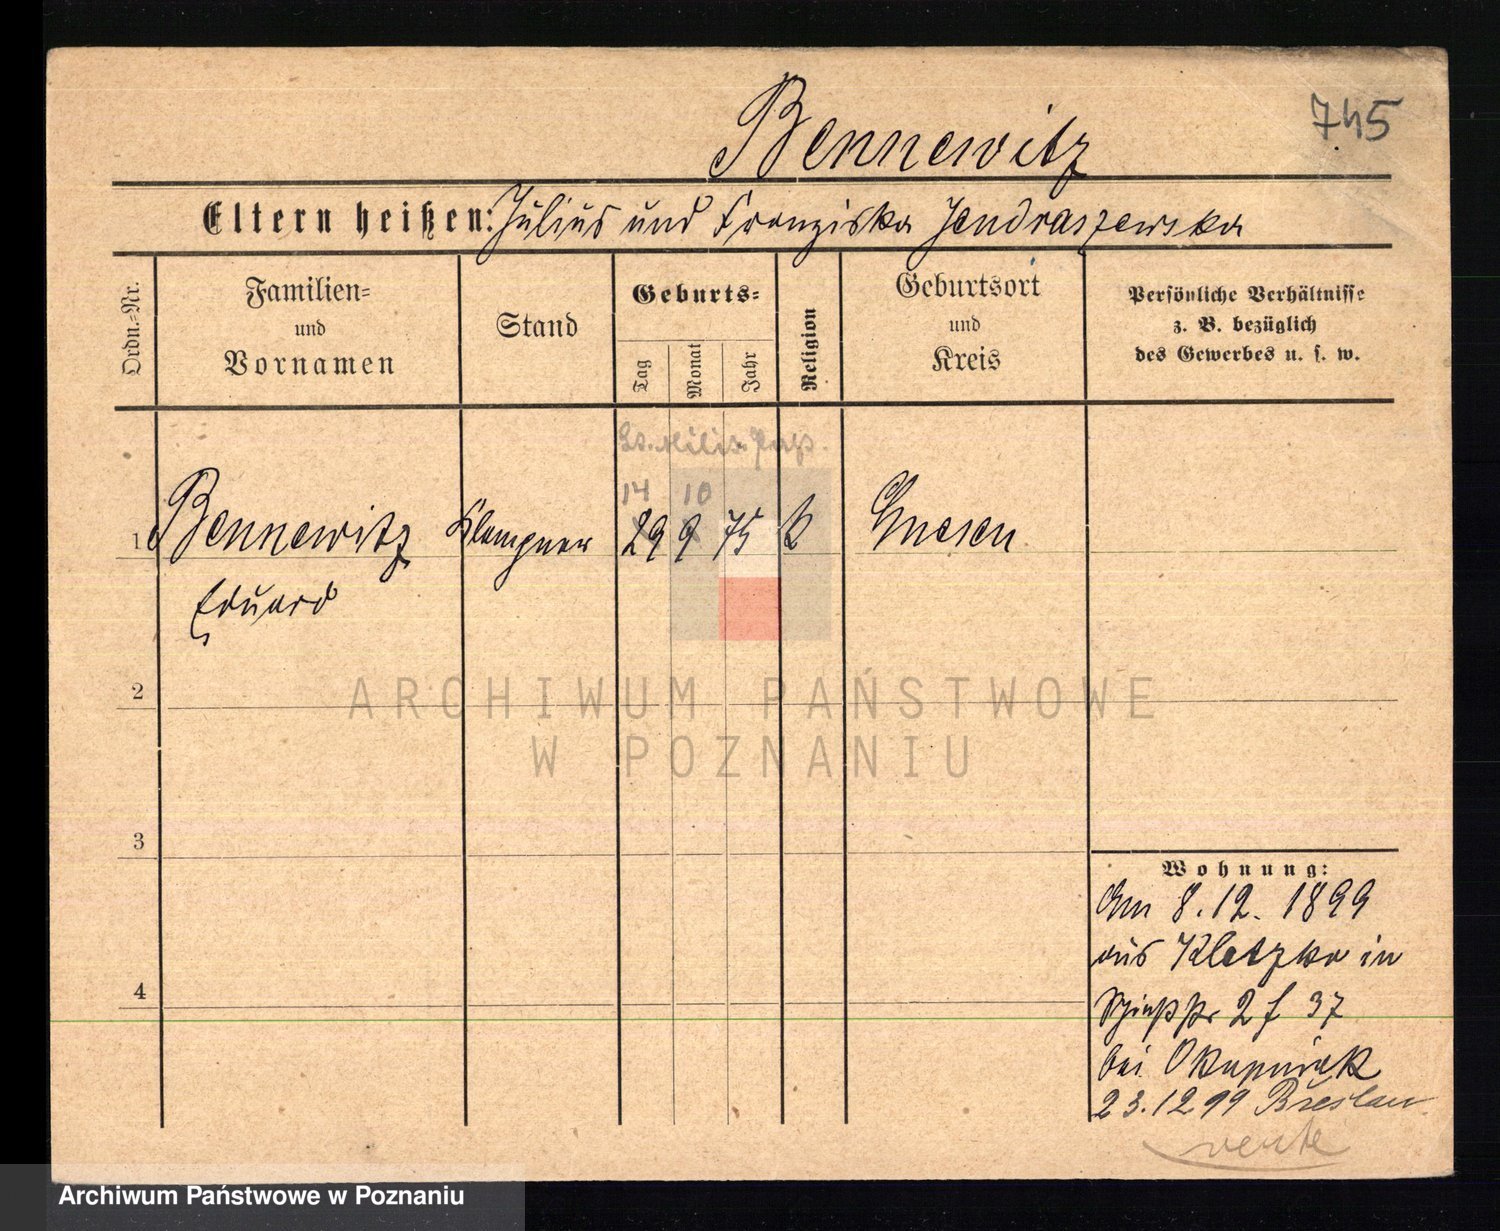 745
Bennewitz
Eltern heißen: Julius und Franziska Jendraszewska
Ordn.=Nr.
Familien=
und
Vornamen
Stand
Geburts=
Tag
Monat
Jahr
Religion
Geburtsort
und
Kreis
Persönliche Verhältnisse
z. B. bezüglich
des Gewerbes u. s. w.
14 10
1 Bennewitz Klempner 29 9 75 k Gnesen
Eduard
2
ARCHIWUM PAŃSTWOWE
W POZNANIU
3
4
Wohnung:
Am 8.12. 1899
aus Kletzko in
2 f 37
bei
23.12 99 Breslau
verte
Archiwum Państwowe w Poznaniu